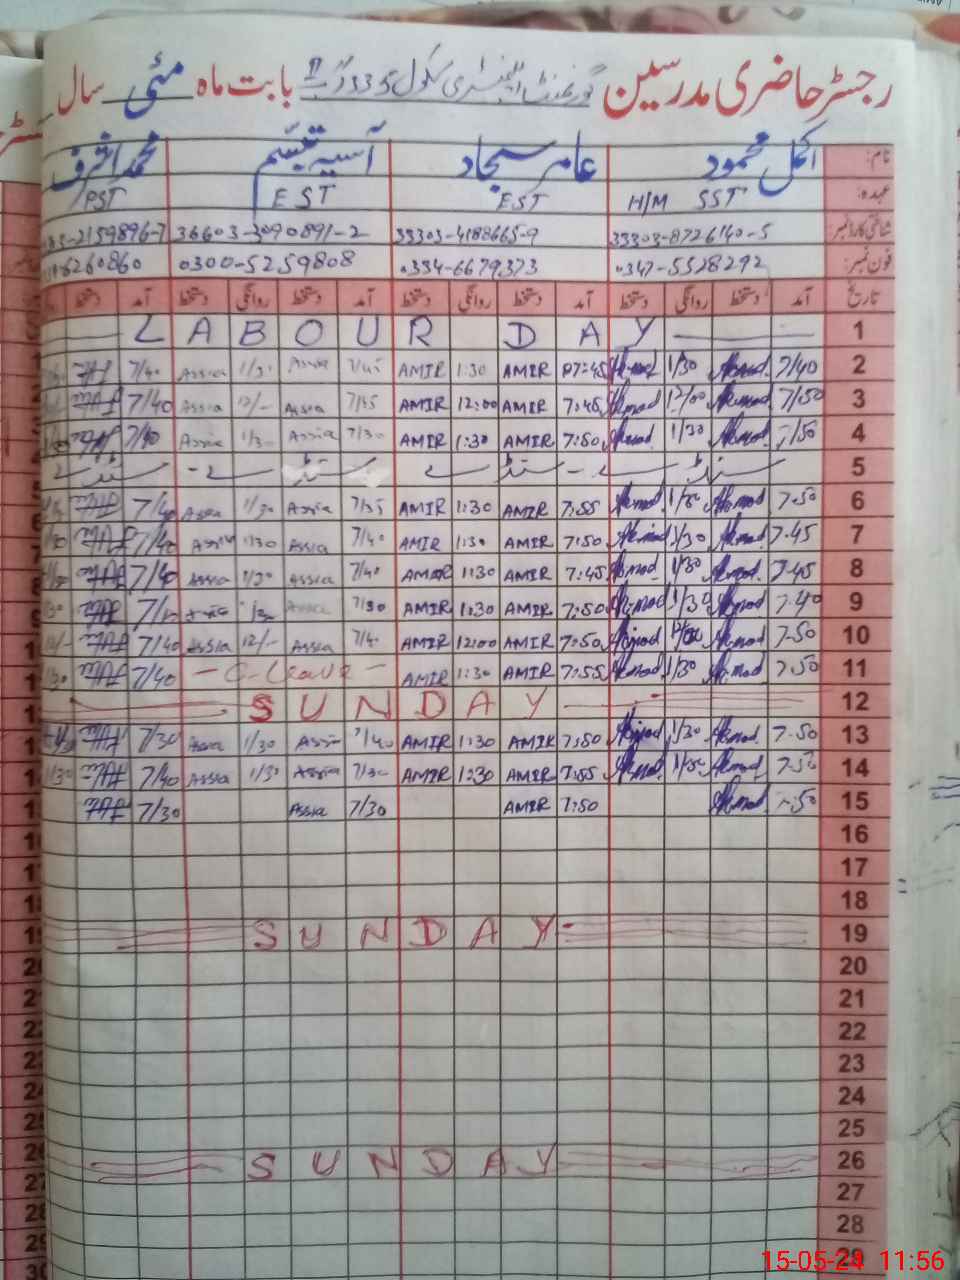 رجسٹر حاضری مدرسین گورنمنٹ ایلیمنٹری سکول 335 گ ب بابت ماہ مئی سال
نام: اکمل محمود عامر سجاد آسیہ تبسم محمد اشرف
عہدہ: H/M SST EST EST PST
شناختی کارڈ نمبر 33303-8726140-5 33303-4188665-9 36603-3090891-2 2159896-7
فون نمبر: 0347-5528292 0334-6679373 0300-5259808 6260860
تاریخ آمد دستخط روانگی دستخط آمد دستخط روانگی دستخط آمد دستخط روانگی دستخط آمد دستخط
LABOUR DAY 1
7/40 Assia 1/30 Assia 7/45 AMIR 1:30 AMIR 07:45 Akmod 1/30 Akmod 7/40 2
7/40 Assia 12/- Assia 7/35 AMIR 12:00 AMIR 7:45 Akmod 12/00 Akmod 7/50 3
7/40 Assia 1/30 Assia 7/30 AMIR 1:30 AMIR 7:50 Akmod 1/30 Akmod 7/50 4
سنڈے - سنڈے سنڈے - سنڈے 5
7/40 Assia 1/30 Assia 7/35 AMIR 1:30 AMIR 7:55 Akmod 1/30 Akmod 7.50 6
7/40 Assia 1/30 Assia 7/40 AMIR 1:30 AMIR 7:50 Akmod 1/30 Akmod 7.45 7
7/40 Assia 1/30 Assia 7/40 AMIR 1:30 AMIR 7:45 Akmod 1/30 Akmod 7.45 8
Assia 7/30 AMIR 1:30 AMIR 7:50 Akmod 1/30 Akmod 7.40 9
7/40 Assia 12/- Assia 7/40 AMIR 12:00 AMIR 7:50 Akmod 12/00 Akmod 7.50 10
7/40 - C-Leave - AMIR 1:30 AMIR 7:55 Akmod 1/30 Akmod 7.50 11
SUNDAY 12
7/30 Assia 1/30 Assia 7/40 AMIR 1:30 AMIR 7:50 Akmod 1/30 Akmod 7.50 13
1/30 7/40 Assia 1/30 Assia 7/30 AMIR 1:30 AMIR 7:55 Akmod 1/30 Akmod 7.50 14
7/30 Assia 7/30 AMIR 7:50 Akmod 7.50 15
16
17
18
SUNDAY 19
20
21
22
23
24
25
SUNDAY 26
27
28
29
15-05-24 11:56